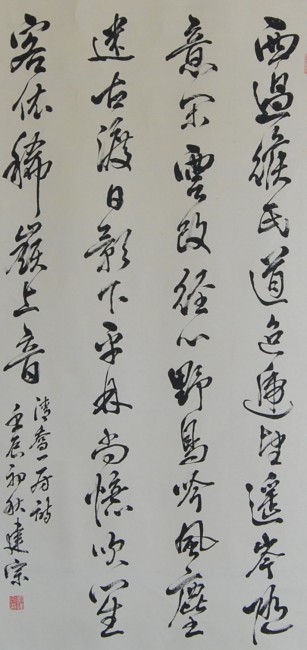 西過緱氏道迢遞望遙岑隨
意雲改經心野鳥吟風塵
迷古渡日影下平林尚憶吹笙
客依稀嶺上音
清喬一詩
壬辰初秋建宗